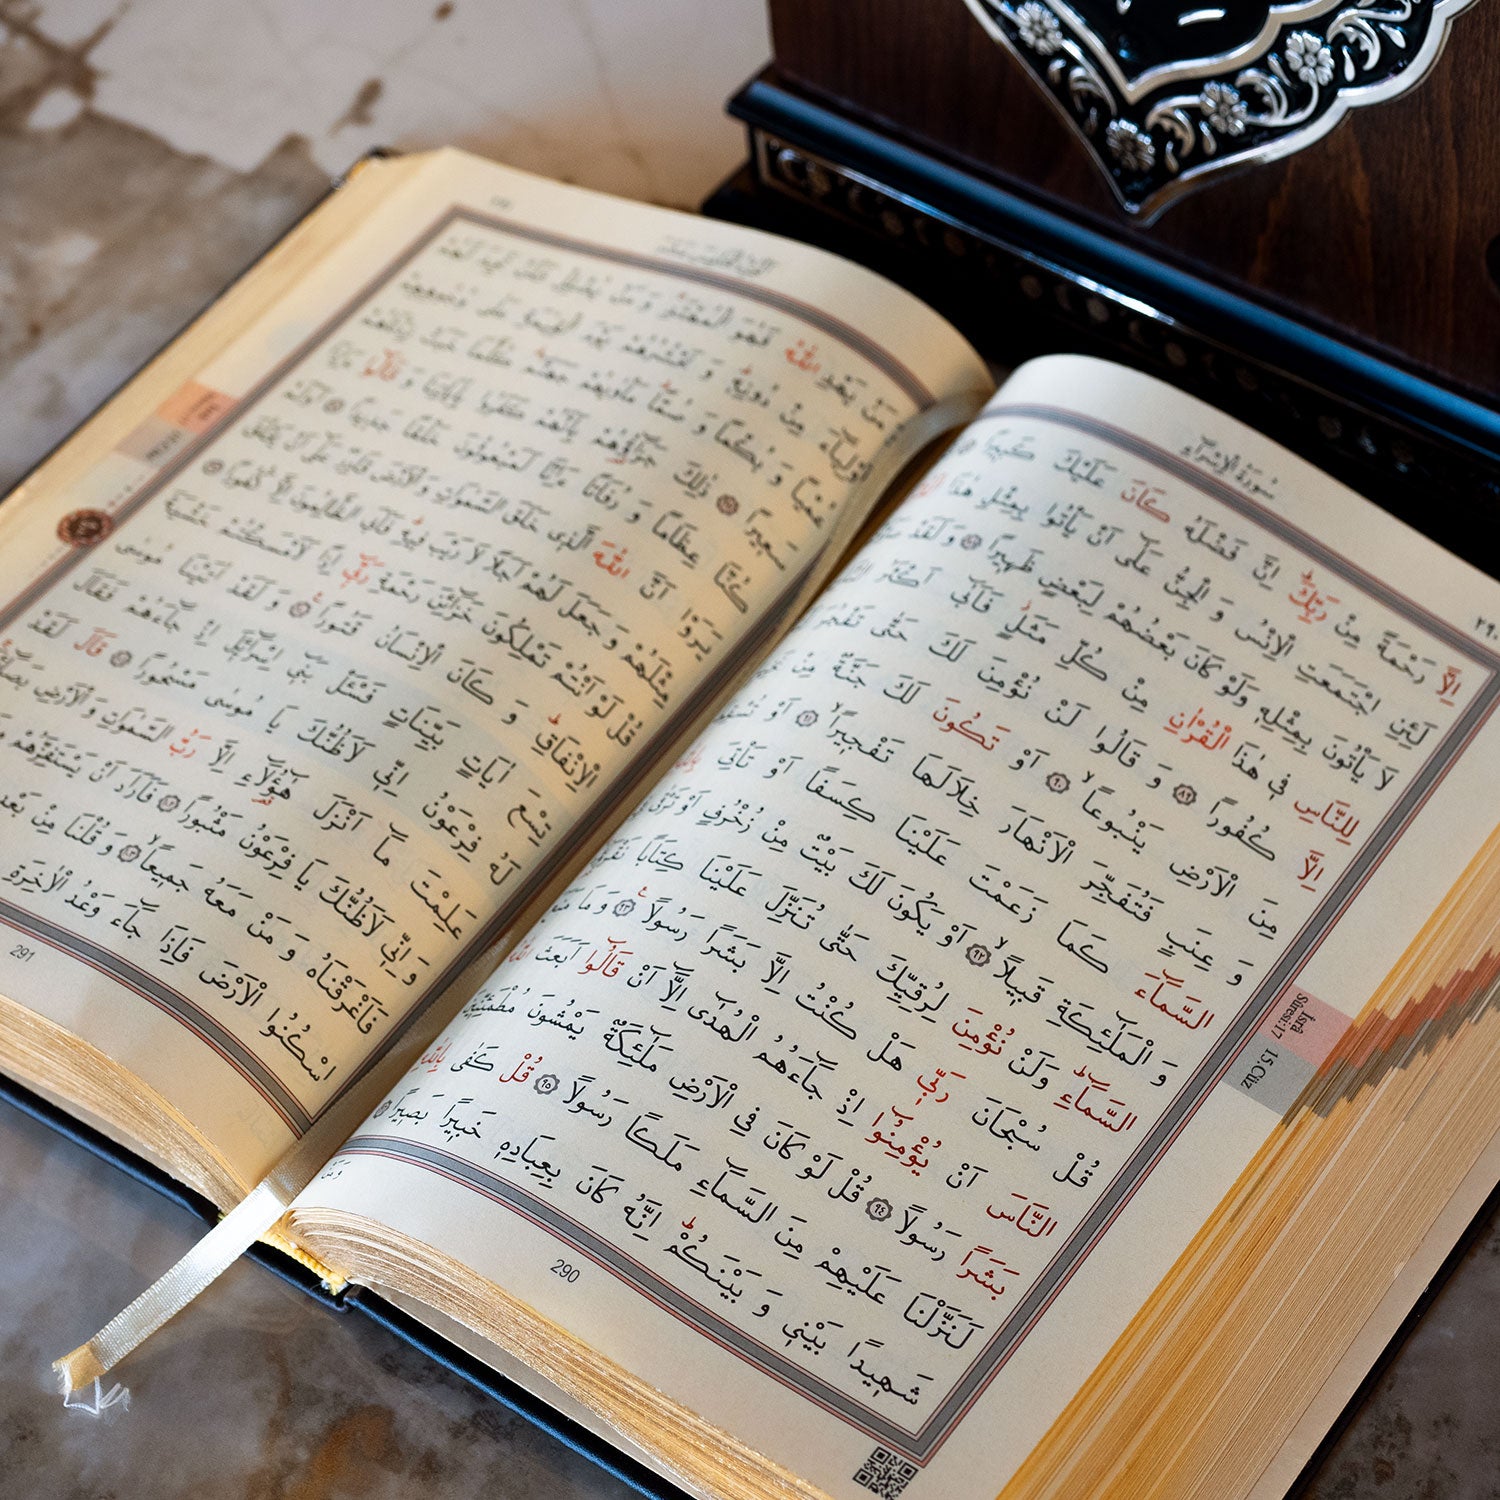 سُورَةُ الْاِسْرَاءِ
اِلَّا رَحْمَةً مِنْ رَبِّكَۜ اِنَّ فَضْلَهُ كَانَ عَلَيْكَ كَبِيرًا
لَئِنِ اجْتَمَعَتِ الْاِنْسُ وَ الْجِنُّ عَلٰٓى اَنْ يَأْتُوا بِمِثْلِ هٰذَا
لَا يَأْتُونَ بِمِثْلِهِ وَلَوْ كَانَ بَعْضُهُمْ لِبَعْضٍ ظَهِيرًا ﴿٨٨﴾ وَ لَقَدْ
لِلنَّاسِ فِي هٰذَا الْقُرْاٰنِ مِنْ كُلِّ مَثَلٍۘ فَاَبٰٓى اَكْثَرُ
اِلَّا كُفُورًا ﴿٨٩﴾ وَ قَالُوا لَنْ نُؤْمِنَ لَكَ حَتّٰى تَفْجُرَ
مِنَ الْاَرْضِ يَنْبُوعًاۙ ﴿٩٠﴾ اَوْ تَكُونَ لَكَ جَنَّةٌ مِنْ
وَ عِنَبٍ فَتُفَجِّرَ الْاَنْهَارَ خِلَالَهَا تَفْجِيرًاۙ ﴿٩١﴾ اَوْ
السَّمَٓاءَ كَمَا زَعَمْتَ عَلَيْنَا كِسَفًا اَوْ تَأْتِيَ
وَ الْمَلٰٓئِكَةِ قَبِيلًاۙ ﴿٩٢﴾ اَوْ يَكُونَ لَكَ بَيْتٌ مِنْ زُخْرُفٍ اَوْ
السَّمَٓاءِۜ وَلَنْ نُؤْمِنَ لِرُقِيِّكَ حَتّٰى تُنَزِّلَ عَلَيْنَا كِتَابًا
قُلْ سُبْحَانَ رَبِّي هَلْ كُنْتُ اِلَّا بَشَرًا رَسُولًا۟ ﴿٩٣﴾ وَ مَا
النَّاسَ اَنْ يُؤْمِنُٓوا اِذْ جَٓاءَهُمُ الْهُدٰٓى اِلَّٓا اَنْ قَالُٓوا اَبَعَثَ
بَشَرًا رَسُولًا ﴿٩٤﴾ قُلْ لَوْ كَانَ فِي الْاَرْضِ مَلٰٓئِكَةٌ يَمْشُونَ مُطْمَئِنِّينَ
لَنَزَّلْنَا عَلَيْهِمْ مِنَ السَّمَٓاءِ مَلَكًا رَسُولًا ﴿٩٥﴾ قُلْ كَفٰى بِاللّٰهِ
شَهِيدًا بَيْنِي وَ بَيْنَكُمْۜ اِنَّهُ كَانَ بِعِبَادِهِ خَبِيرًا بَصِيرًا
290
İsrâ
Sûresi:17
15.Cüz
مَنْ يَهْدِ اللّٰهُ فَهُوَ الْمُهْتَدِۚ وَ مَنْ يُضْلِلْ فَلَنْ تَجِدَ لَهُمْ
اَوْلِيَٓاءَ مِنْ دُونِهِۜ وَ نَحْشُرُهُمْ يَوْمَ الْقِيٰمَةِ عَلٰى وُجُوهِهِمْ
عُمْيًا وَ بُكْمًا وَ صُمًّاۜ مَأْوٰيهُمْ جَهَنَّمُۜ كُلَّمَا خَبَتْ زِدْنَاهُمْ
سَعِيرًا ﴿٩٧﴾ ذٰلِكَ جَزَٓاؤُهُمْ بِاَنَّهُمْ كَفَرُوا بِاٰيَاتِنَا وَ قَالُٓوا
كُنَّا عِظَامًا وَ رُفَاتًا ءَاِنَّا لَمَبْعُوثُونَ خَلْقًا جَدِيدًا ﴿٩٨﴾ اَوَلَمْ
يَرَوْا اَنَّ اللّٰهَ الَّذِي خَلَقَ السَّمٰوَاتِ وَ الْاَرْضَ قَادِرٌ عَلٰٓى اَنْ يَخْلُقَ
مِثْلَهُمْ وَ جَعَلَ لَهُمْ اَجَلًا لَا رَيْبَ فِيهِۜ فَاَبَى الظَّالِمُونَ اِلَّا كُفُورًا ﴿٩٩﴾
قُلْ لَوْ اَنْتُمْ تَمْلِكُونَ خَزَٓائِنَ رَحْمَةِ رَبِّٓي اِذًا لَاَمْسَكْتُمْ خَشْيَةَ
الْاِنْفَاقِۜ وَ كَانَ الْاِنْسَانُ قَتُورًا۟ ﴿١٠٠﴾ وَ لَقَدْ اٰتَيْنَا مُوسٰى
تِسْعَ اٰيَاتٍ بَيِّنَاتٍ فَسْـَٔلْ بَنِٓي اِسْرَٓائِلَ اِذْ جَٓاءَهُمْ فَقَالَ
لَهُ فِرْعَوْنُ اِنِّي لَاَظُنُّكَ يَا مُوسٰى مَسْحُورًا ﴿١٠١﴾ قَالَ لَقَدْ
عَلِمْتَ مَٓا اَنْزَلَ هٰٓؤُلَٓاءِ اِلَّا رَبُّ السَّمٰوَاتِ وَ الْاَرْضِ
وَ اِنِّي لَاَظُنُّكَ يَا فِرْعَوْنُ مَثْبُورًا ﴿١٠٢﴾ فَاَرَادَ اَنْ يَسْتَفِزَّهُمْ
فَاَغْرَقْنَاهُ وَ مَنْ مَعَهُ جَمِيعًاۙ ﴿١٠٣﴾ وَ قُلْنَا مِنْ
اسْكُنُوا الْاَرْضَ فَاِذَا جَٓاءَ وَعْدُ الْاٰخِرَةِ
291